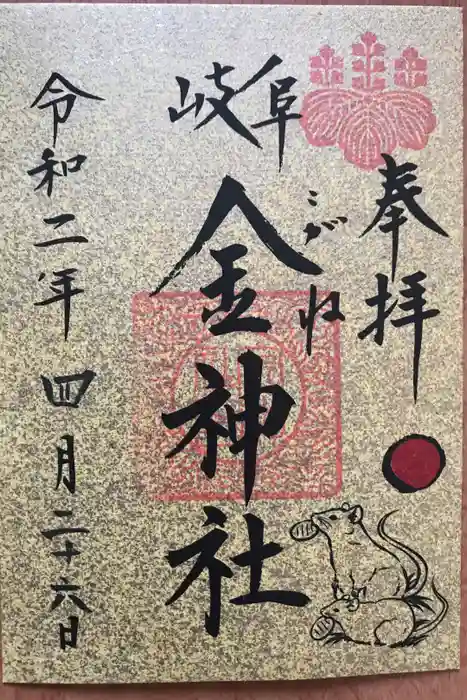 奉拝
岐阜
金神社
こがね
令和二年 四月二十六日